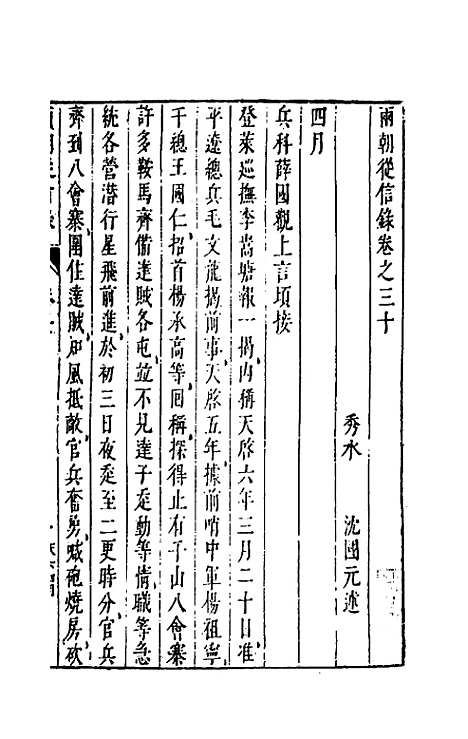 兩朝從信錄卷之三十
秀水 沈國元 述
四月
兵科薛國觀上言頃接
登萊巡撫李嵩塘報一揭內稱天啓六年三月二十日准
平遼總兵毛文龍揭前事天啓五年據前哨中軍楊祖寧
千總王國仁招首楊承高等回稱探得止有子山八會寨
許多鞍馬齊備達賊各屯並不見達子走動等情職等急
統各營潛行星飛前進於初三日夜走至二更時分官兵
齊到八會寨圍住達賊知風抵敵官兵奮勇喊砲燒房砍